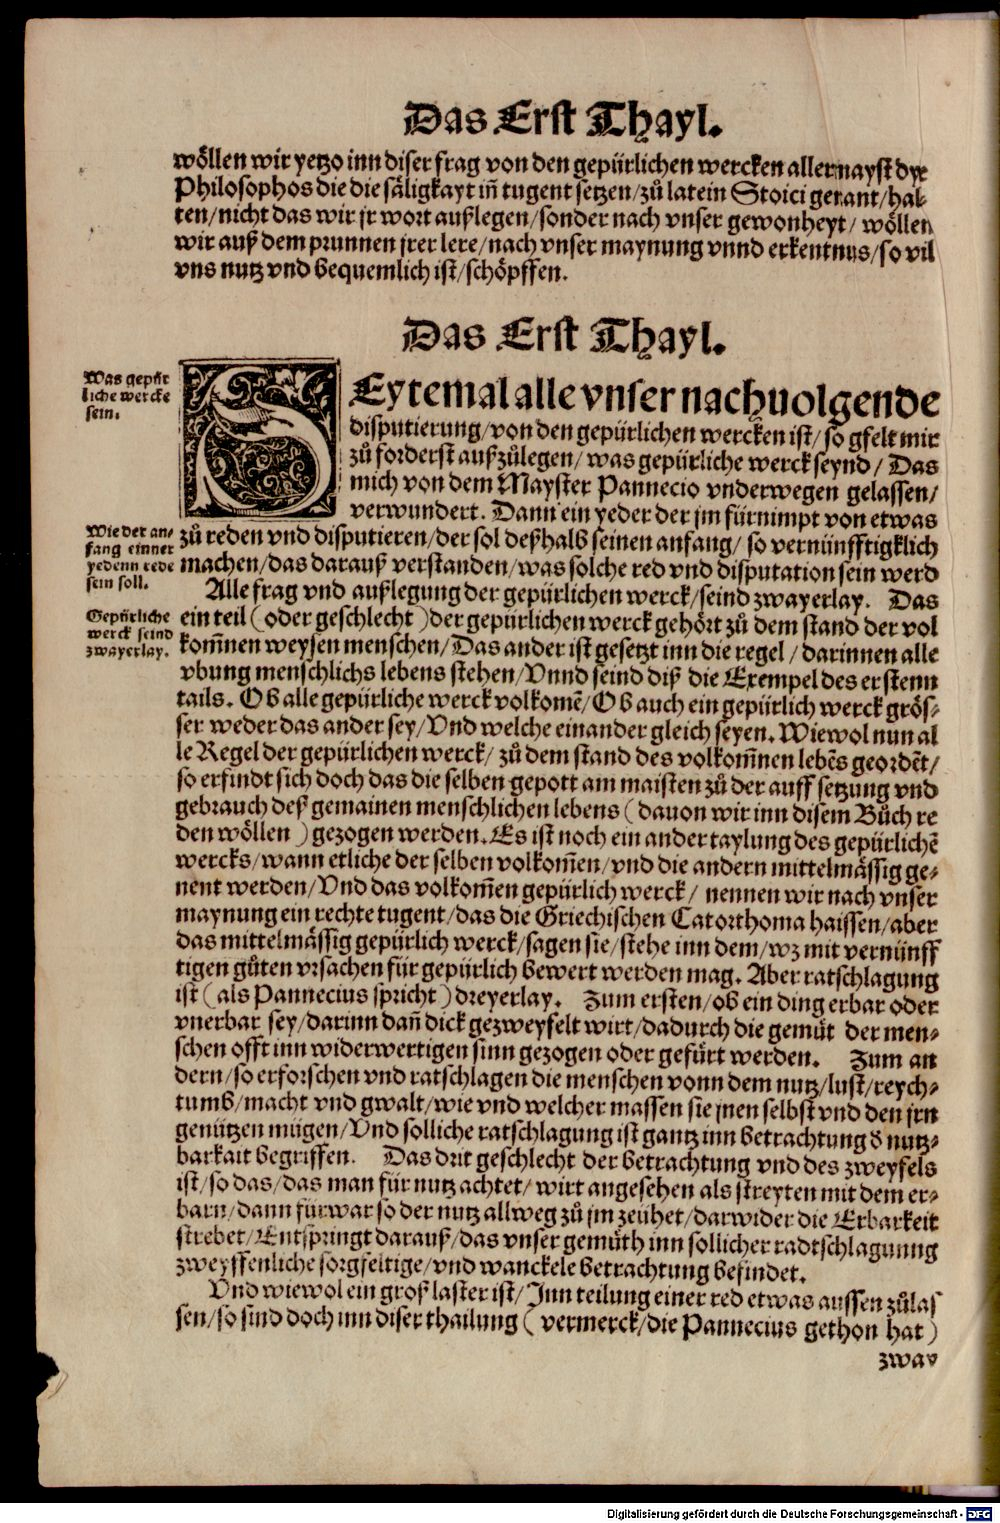 Das Erst Thayl.
wöllen wir yetzo inn diser frag von den gepürlichen wercken allermayst dye
Philosophos die die säligkayt iñ tugent setzen/zů latein Stoici genant/hal-
ten/nicht das wir jr wort außlegen/sonder nach vnser gewonheyt/ wöllen
wir auß dem prunnen jrer lere/nach vnser maynung vnnd erkentnus/so vil
vns nutz vnd bequemlich ist/schöpffen.
Das Erst Thayl.
Was gepür
liche wercke
sein.
SEytemal alle vnser nachuolgende
disputierung/von den gepürlichen wercken ist/so gfelt mir
zů forderst außzůlegen/ was gepürliche werck seynd/ Das
mich von dem Mayster Pannecio vnderwegen gelassen/
verwundert. Dann ein yeder der jm fürnimpt von etwas
Wie der an-
fang einner
yedenn rede
sein soll.
zů reden vnd disputieren/der sol deßhalb seinen anfang/ so vernünfftigklich
machen/das darauß verstanden/was solche red vnd disputation sein werd
Alle frag vnd außlegung der gepürlichen werck/seind zwayerlay. Das
Gepürliche
werck seind
zwayerlay.
ein teil (oder geschlecht) der gepürlichen werck gehört zů dem stand der vol
kom̃nen weysen menschen/Das ander ist gesetzt inn die regel/ darinnen alle
vbung menschlichs lebens stehen/Vnnd seind diß die Exempel des erstenn
tails. Ob alle gepürliche werck volkomẽ/Ob auch ein gepürlich werck grös-
ser weder das ander sey/Vnd welche einander gleich seyen. Wiewol nun al
le Regel der gepürlichen werck/ zů dem stand des volkom̃nen lebẽs geordẽt/
so erfindt sich doch das die selben gepott am maisten zů der auffsetzung vnd
gebrauch deß gemainen menschlichen lebens (dauon wir inn disem Bůch re
den wöllen) gezogen werden. Es ist noch ein ander taylung des gepürlichẽ
wercks/wann etliche der selben volkom̃en/vnd die andern mittelmässig ge-
nent werden/Vnd das volkom̃en gepürlich werck/ nennen wir nach vnser
maynung ein rechte tugent/das die Griechischen Catorthoma haissen/aber
das mittelmässig gepürlich werck/sagen sie/stehe inn dem/wz mit vernünff
tigen gůten vrsachen für gepürlich bewert werden mag. Aber ratschlagung
ist (als Pannecius spricht) dreyerlay. Zum ersten/ob ein ding erbar oder
vnerbar sey/darinn dañ dick gezweyfelt wirt/dadurch die gemüt der men-
schen offt inn widerwertigen sinn gezogen oder gefürt werden. Zum an
dern/so erforschen vnd ratschlagen die menschen vonn dem nutz/lust/reych-
tumb/macht vnd gwalt/wie vnd welcher massen sie jnen selbst vnd den jrn
genützen mügen/Vnd solliche ratschlagung ist gantz inn betrachtung d̕ nutz-
barkait begriffen. Das drit geschlecht der betrachtung vnd des zweyfels
ist/so das/das man für nutz achtet/ wirt angesehen als streyten mit dem er-
barn/dann fürwar so der nutz allweg zů jm zeühet/darwider die Erbarkeit
strebet/Entspringt darauß/das vnser gemüth inn sollicher radtschlagunng
zweyffenliche sorgfeltige/vnd wanckele betrachtung befindet.
Vnd wiewol ein groß laster ist/Inn teilung einer red etwas aussen zůlas
sen/so sind doch inn diser thailung (vermerck/die Pannecius gethon hat)
zway
Digitalisierung gefördert durch die Deutsche Forschungsgemeinschaft - DFG